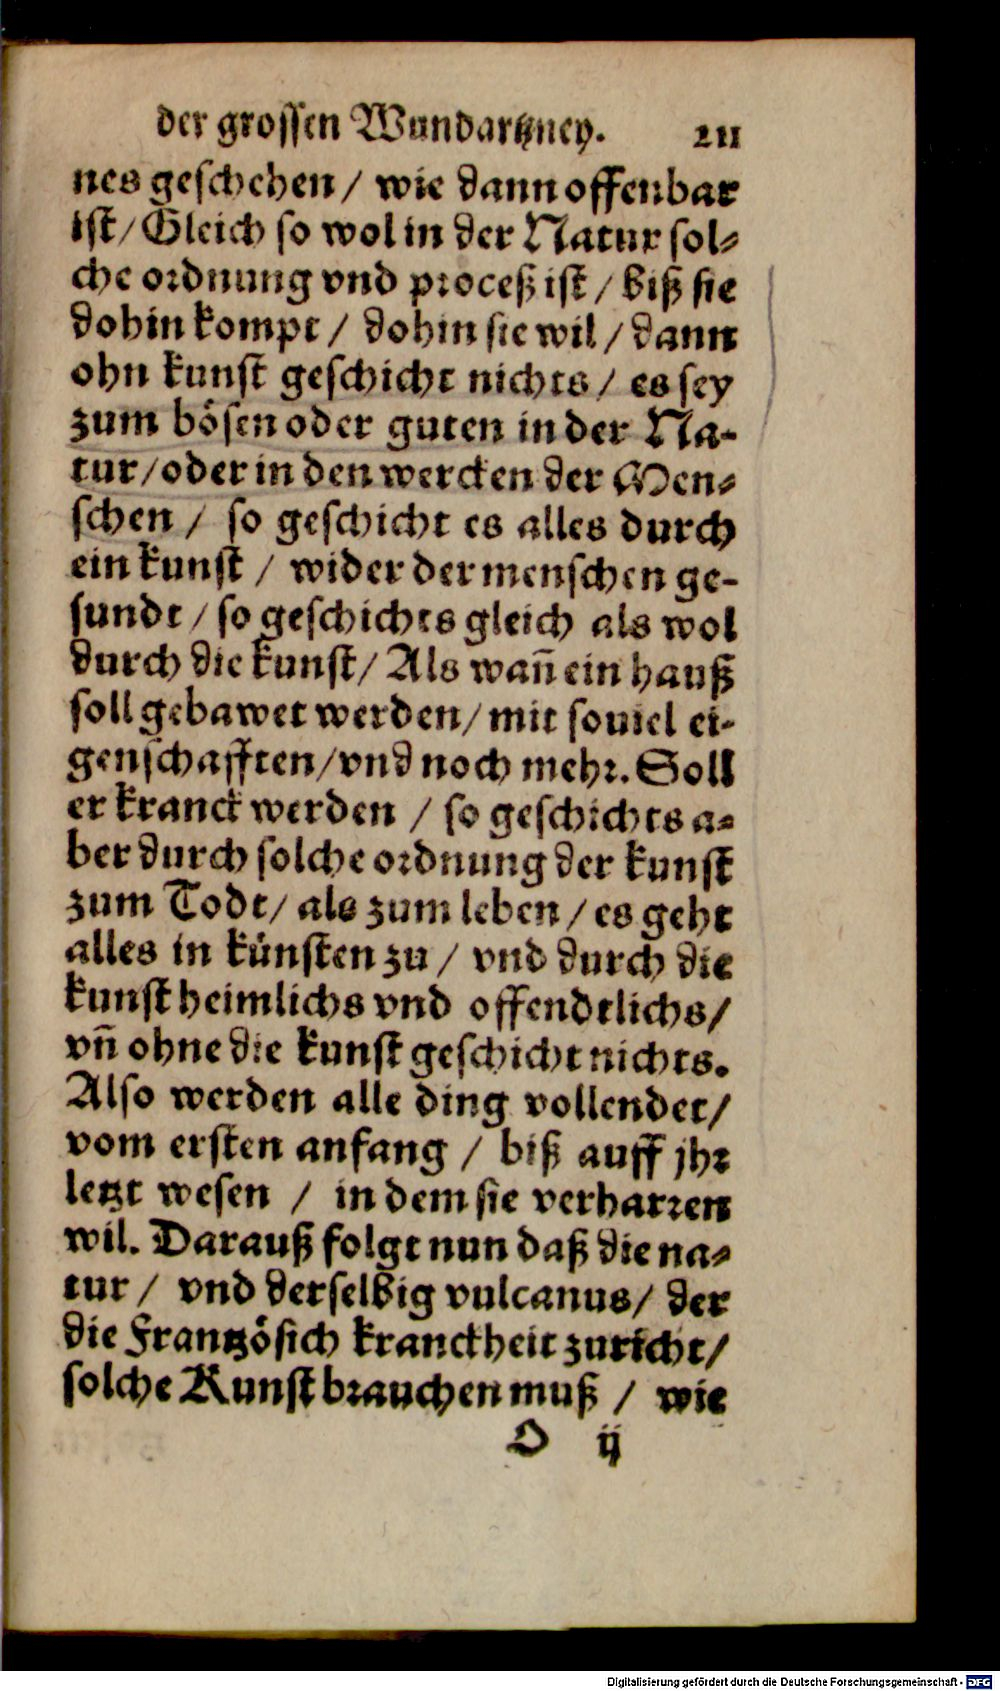 der grossen Wundartzney. 211
nes geschehen / wie dann offenbar
ist / Gleich so wol in der Natur sol⸗
che ordnung vnd proceß ist / biß sie
dohin kompt / dohin sie wil / dann
ohn kunst geschicht nichts / es sey
zum bösen oder guten in der Na-
tur / oder in den wercken der Men⸗
schen / so geschicht es alles durch
ein kunst / wider der menschen ge-
sundt / so geschichts gleich als wol
durch die kunst / Als wañ ein hauß
soll gebawet werden / mit souiel ei-
genschafften / vnd noch mehr. Soll
er kranck werden / so geschichts a⸗
ber durch solche ordnung der kunst
zum Todt / als zum leben / es geht
alles in künsten zu / vnd durch die
kunst heimlichs vnd offendtlichs /
vñ ohne die kunst geschicht nichts.
Also werden alle ding vollendet /
vom ersten anfang / biß auff jhr
letzt wesen / in dem sie verharren
wil. Darauß folgt nun daß die na⸗
tur / vnd derselbig vulcanus / der
die Frantzösich kranckheit zuricht /
solche Kunst brauchen muß / wie
O ij
Digitalisierung gefördert durch die Deutsche Forschungsgemeinschaft - DFG